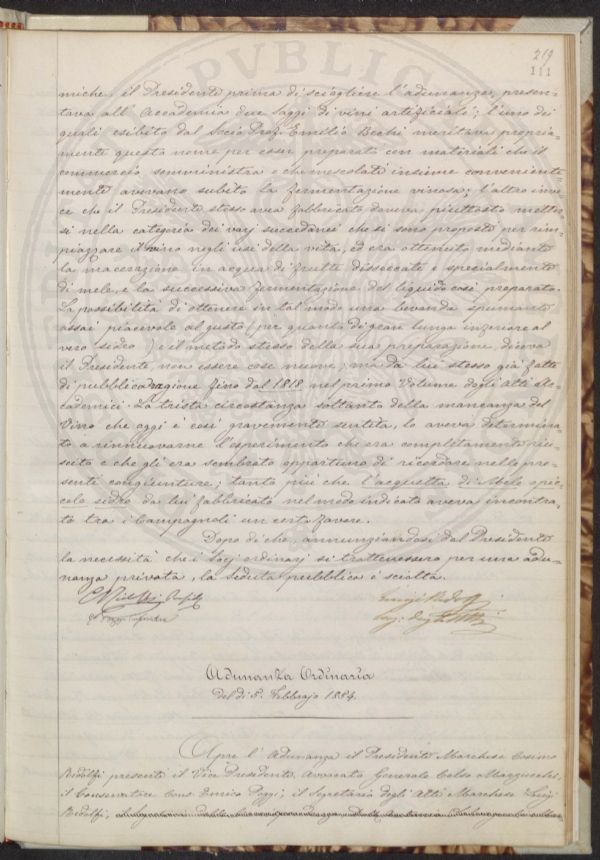 219
111
miche il Presidente prima di sciogliere l'adunanza, presen-
tava all'Accademia due Saggi di vini artificiali; l'uno dei
quali esibito dal Socio Prof. Emilio Bechi meritava propria-
mente questo nome per esser preparato con materiali che il
commercio somministra e che mescolati insieme conveniente-
mente avevano subito la fermentazione vinosa; l'altro inve-
ce che il Presidente stesso avea fabbricato doveva piuttosto metter-
si nella categoria dei varj succedanei che si sono proposti per rim-
piazzare il vino negli usi della vita, ed era ottenuto mediante
la macerazione in acqua di frutte disseccate e specialmente
di mele, e la successiva fermentazione del liquido così preparato.
La possibilità di ottenere in tal modo una bevanda spumante
assai piacevole al gusto (per quanto di gran lunga inferiore al
vero sidro) e il metodo stesso della sua preparazione, diceva
il Presidente, non essere cose nuove; ma da lui stesso già fatte
di pubblica ragione fino dal 1818 nel primo Volume degli Atti Ac-
cademici. La trista circostanza soltanto della mancanza del
Vino che oggi è così gravemente sentita, lo aveva determina-
to a rinnuovarne l'esperimento che era completamente riu-
scito e che gli era sembrato opportuno di ricordare nelle pre-
senti congiunture; tanto più che l'acquetta di Mele o pic-
colo sidro da lui fabbricato nel modo indicato aveva incontra-
to tra i Campagnoli un certo favore.
Dopo di che, annunziandosi dal Presidente
la necessità che i Socj ordinarj si trattenessero per una adu-
nanza privata, la Seduta pubblica è sciolta.
Luigi Ridolfi
Adunanza Ordinaria
del dì 5. Febbrajo 1854.
Apre l'Adunanza il Presidente Marchese Cosimo
Ridolfi presenti il Vice Presidente Avvocato Generale Celso Marzucchi,
il Conservatore Cons. Enrico Poggi, il Segretario degli Atti Marchese Luigi
Ridolfi,